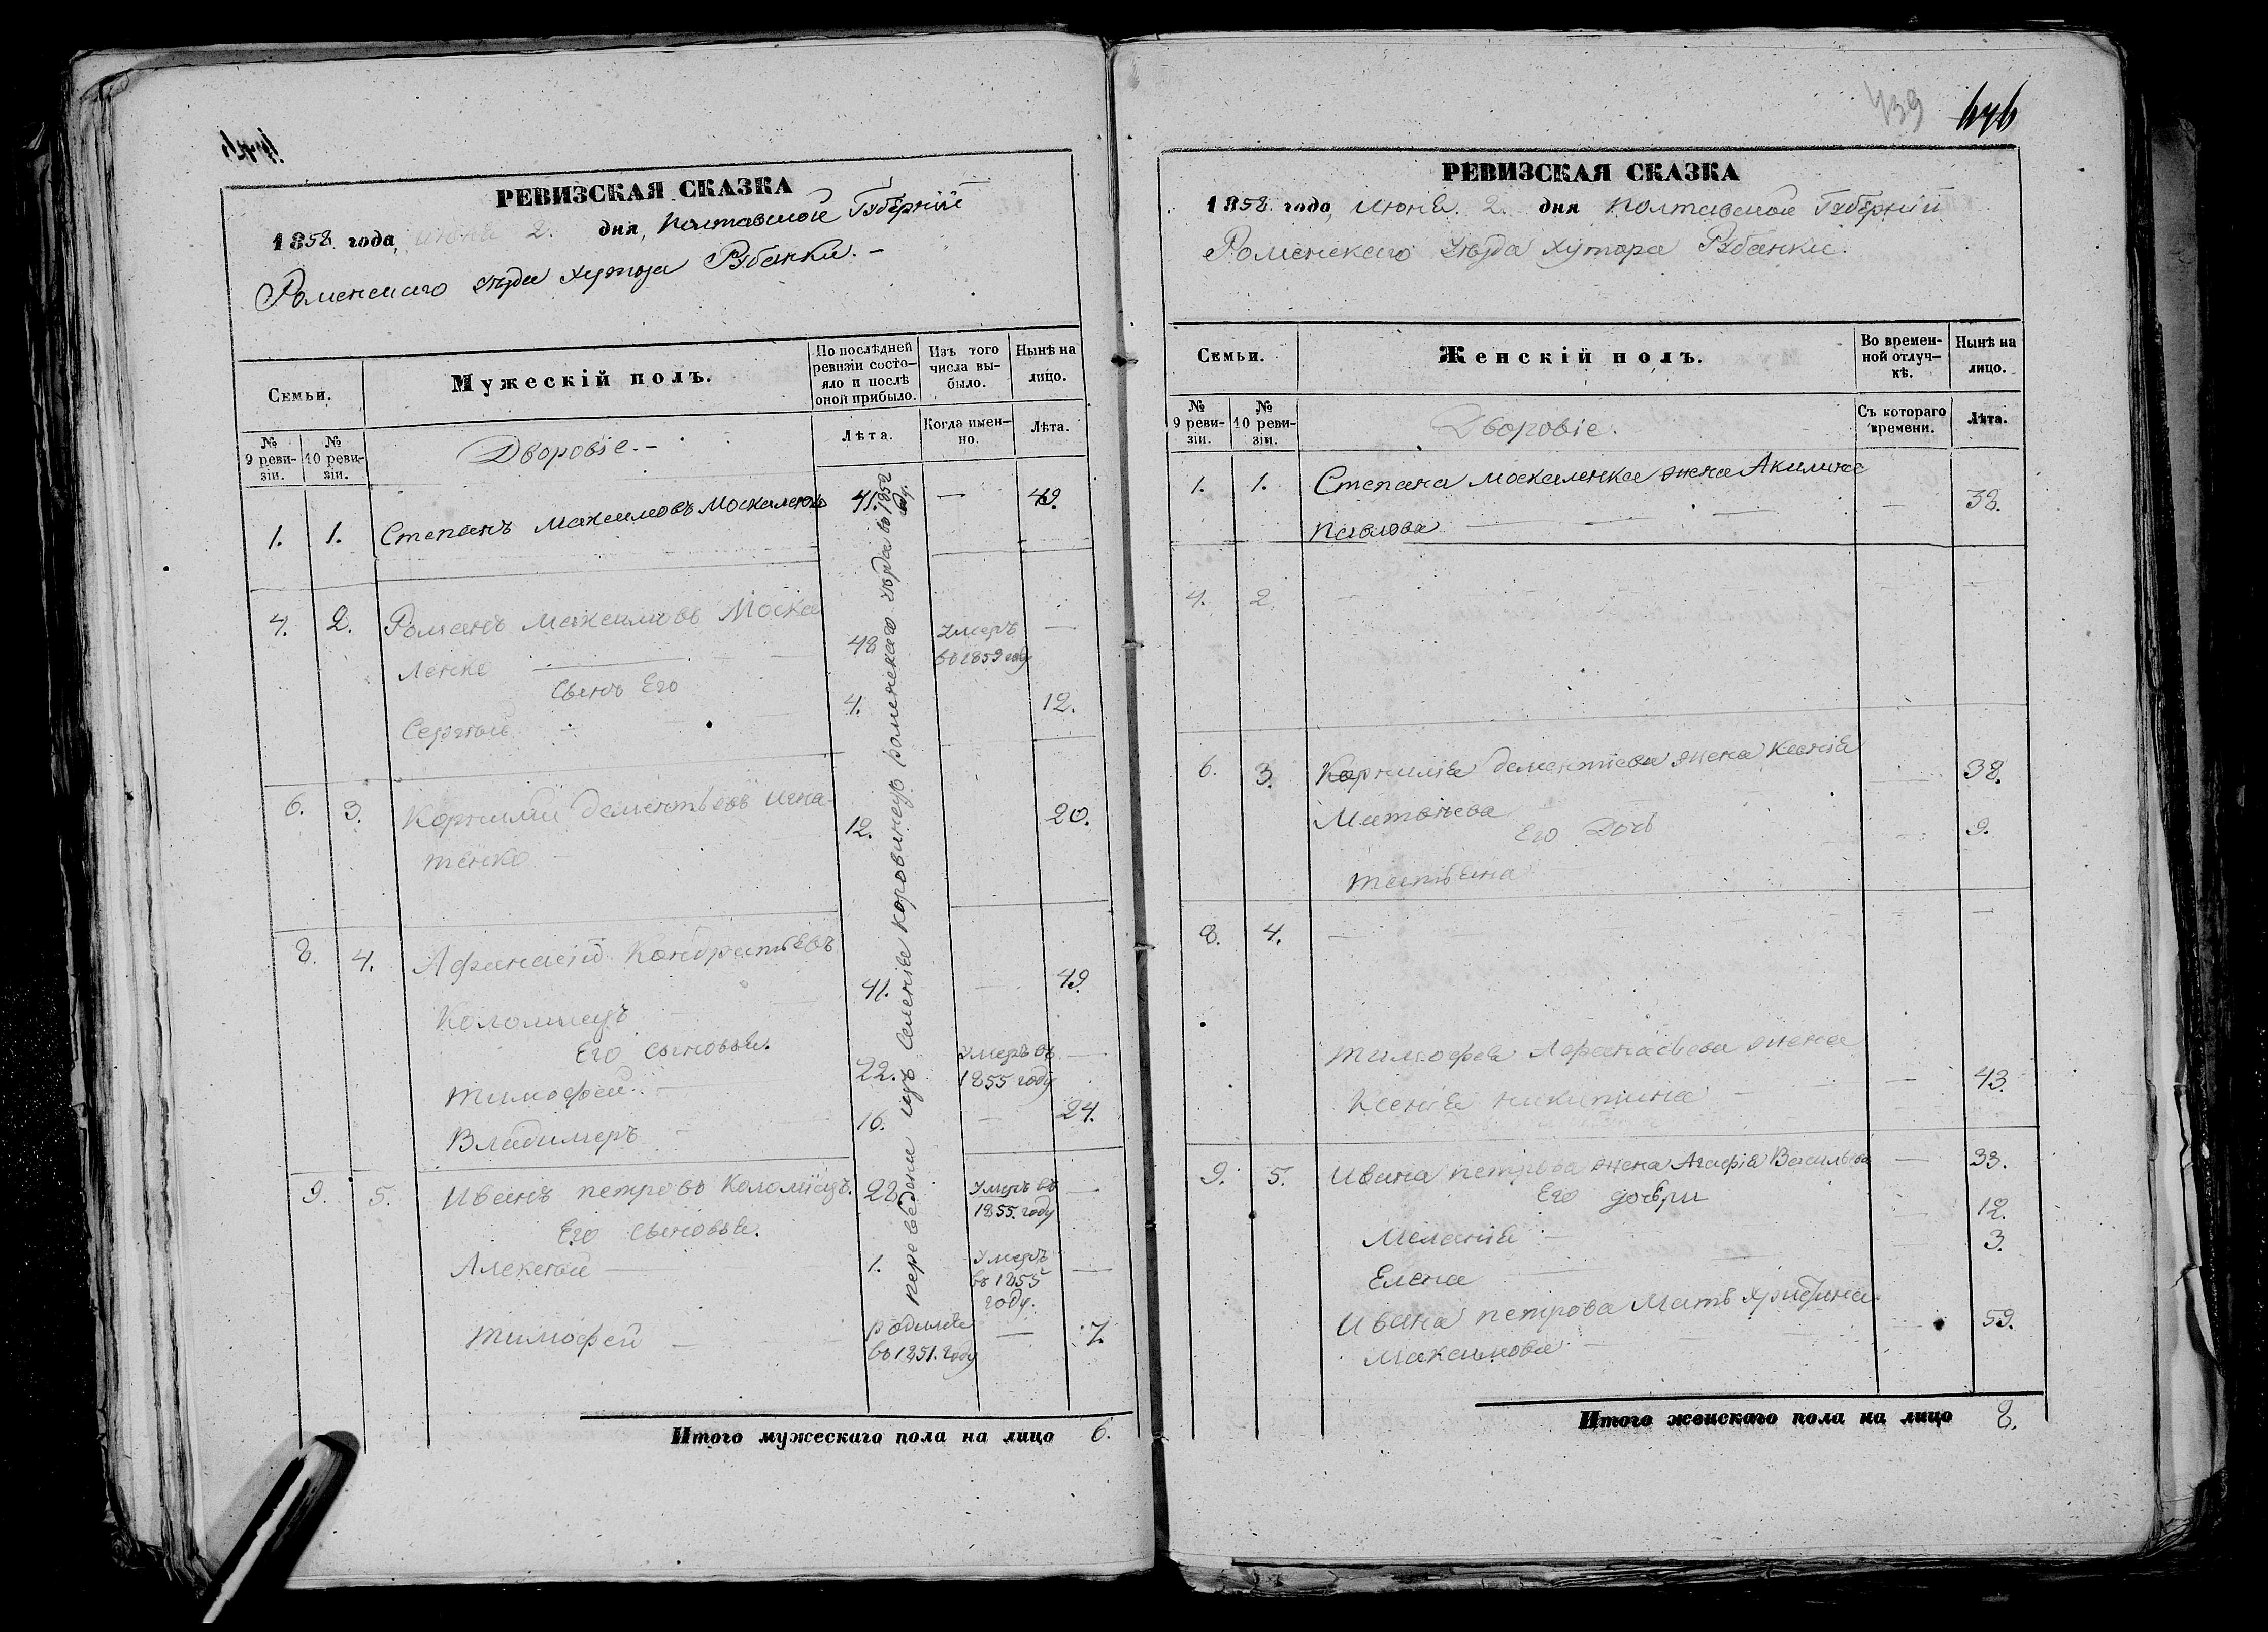 РЕВИЗСКАЯ СКАЗКА
1858 года, июня 2. дня, Полтавской Губерніи
Роменскаго уѣзда хутора Рубанки. –
Семьи.
Мужескій полъ.
По послѣдней ревизіи состояло и послѣ оной прибыло.
Изъ того числа выбыло.
Нынѣ на лицо.
№ 9 ревизіи.
№ 10 ревизіи.
Дворовіе. –
Лѣта.
Когда именно.
Лѣта.
1. 1. Степанъ Максимовъ Москаленко 41. — 49.
4. 2. Романъ Максимовъ Моска
ленко 48 Умеръ —
въ 1853 году
Сынъ Его
Сергѣй 4. 12.
6. 3. Корнилій Дементьевъ Игна-
тенко 12. 20.
8. 4. Афанасій Кондратьевъ
Коломіецъ 41. — 49.
Его сыновья.
Тимофей 22. Умеръ въ 1855 году —
Владимеръ 16. — 24.
9. 5. Иванъ Петровъ Коломіецъ. 28 Умеръ въ 1855. году —
Его сыновья.
Алексѣй 1. Умеръ въ 1855 году. —
Тимофей родился въ 1851. году — 7.
переведени изъ Селенія Коровинецъ роменскаго уѣзда въ 1852 году.
Итого мужескаго пола на лицо 6.
439
646
РЕВИЗСКАЯ СКАЗКА
1858 года, июня. 2. дня Полтавской Губерніи
Роменскаго уѣзда хутора Рубанки.
Семьи.
Женскій полъ.
Во временной отлучкѣ.
Нынѣ на лицо.
№ 9 ревизіи.
№ 10 ревизіи.
Дворовіе.
Съ котораго времени.
Лѣта.
1. 1. Степана Москаленка жена Акилина
Павлова — 38.
4. 2. —
6. 3. Корнилія Дементіева жена Ксенія — 38.
Матвѣева
Его Дочь 9.
Татьяна
8. 4. —
Тимофея Афанасьева жена
Ксенія Никитина — 43.
9. 5. Ивана Петрова жена Агафія Васильева — 33.
Его дочѣри
Меланія 12.
Елена 3.
Ивана Петрова Мать Христина
Максимова 59.
Итого женскаго пола на лицо 8.